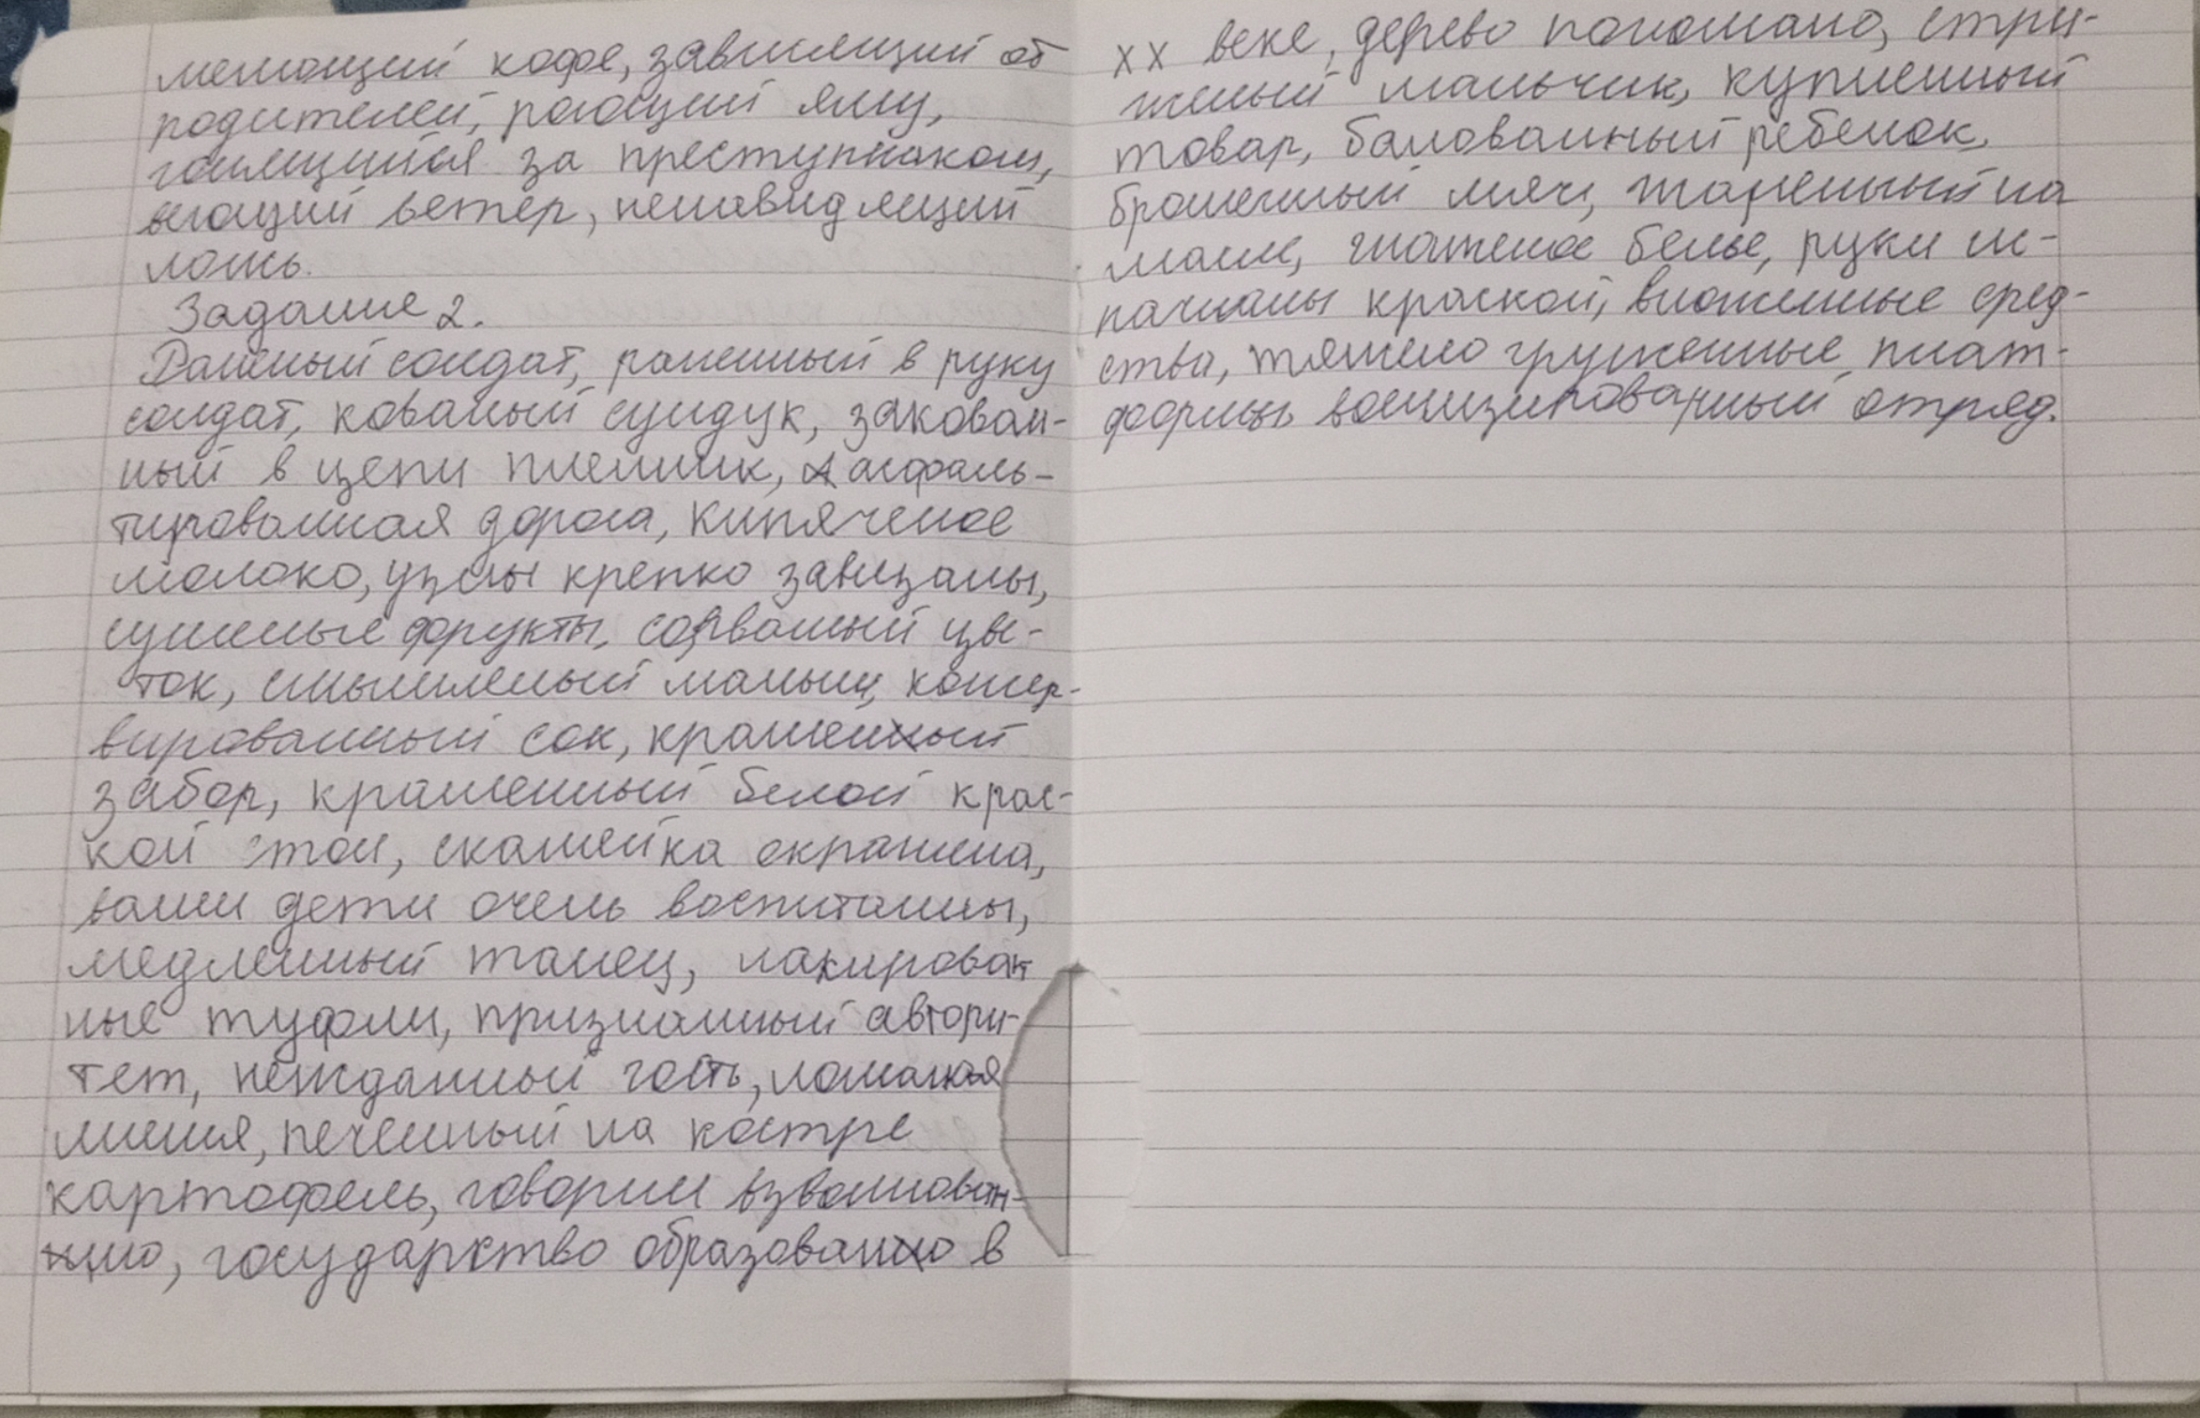 мелющий кофе, зависящий от
родителей, роющий яму,
гонящийся за преступником,
веющий ветер, ненавидящий
ложь.
Задание 2.
Раненый солдат, раненный в руку
солдат, кованый сундук, закован-
ный в цепи пленник, асфаль-
тированная дорога, кипяченое
молоко, узлы крепко завязаны,
сушеные фрукты, сорванный цве-
ток, смышленый малыш, консер-
вированный сок, крашеный
забор, крашенный белой крас-
кой стол, скамейка окрашена,
ваши дети очень воспитанны,
медленный танец, лакирован
ные туфли, признанный автори-
тет, нежданный гость, ломаная
линия, печенный на костре
картофель, говорил взволнован-
но, государство образовано в
XX веке, дерево поломано, стри-
женый мальчик, купленный
товар, балованный ребенок,
брошенный мяч, жаренный на
масле, глаженое белье, руки ис-
пачканы краской, вложенные сред-
ства, тяжело груженные плат-
формы военизированный отряд.